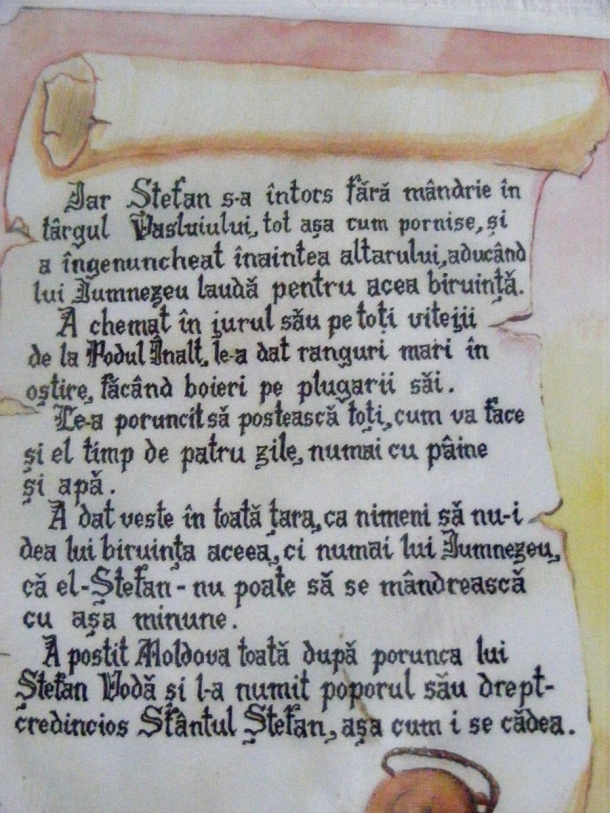 Iar Ștefan s-a întors fără mândrie în
târgul Vasluiului, tot așa cum pornise, și
a îngenuncheat înaintea altarului, aducând
lui Dumnezeu laudă pentru acea biruință.
A chemat în jurul său pe toți vitejii
de la Podul Înalt, le-a dat ranguri mari în
oștire, făcând boieri pe plugarii săi.
Le-a poruncit să postească toți, cum va face
și el timp de patru zile, numai cu pâine
și apă.
A dat veste în toată țara, ca nimeni să nu-i
dea lui biruința aceea, ci numai lui Dumnezeu,
că el - Ștefan - nu poate să se mândrească
cu așa minune.
A postit Moldova toată după porunca lui
Ștefan Vodă și l-a numit poporul său drept-
credincios Sfântul Ștefan, așa cum i se cădea.